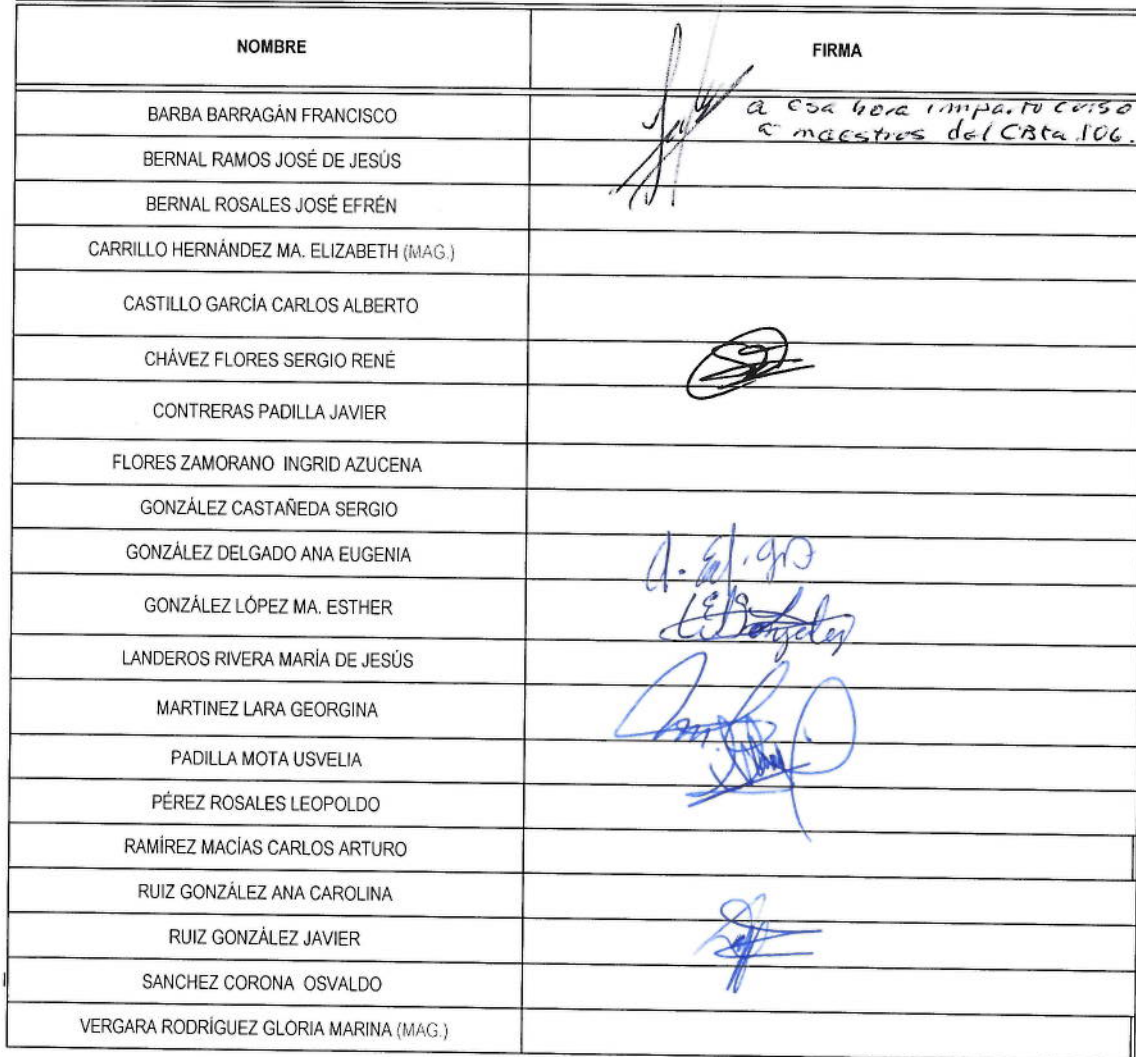 NOMBRE FIRMA
BARBA BARRAGÁN FRANCISCO a esa hora imparto curso
a maestros del CBta 106.
BERNAL RAMOS JOSÉ DE JESÚS
BERNAL ROSALES JOSÉ EFRÉN
CARRILLO HERNÁNDEZ MA. ELIZABETH (MAG.)
CASTILLO GARCÍA CARLOS ALBERTO
CHÁVEZ FLORES SERGIO RENÉ
CONTRERAS PADILLA JAVIER
FLORES ZAMORANO INGRID AZUCENA
GONZÁLEZ CASTAÑEDA SERGIO
GONZÁLEZ DELGADO ANA EUGENIA
GONZÁLEZ LÓPEZ MA. ESTHER
LANDEROS RIVERA MARÍA DE JESÚS
MARTINEZ LARA GEORGINA
PADILLA MOTA USVELIA
PÉREZ ROSALES LEOPOLDO
RAMÍREZ MACÍAS CARLOS ARTURO
RUIZ GONZÁLEZ ANA CAROLINA
RUIZ GONZÁLEZ JAVIER
SANCHEZ CORONA OSVALDO
VERGARA RODRÍGUEZ GLORIA MARINA (MAG.)